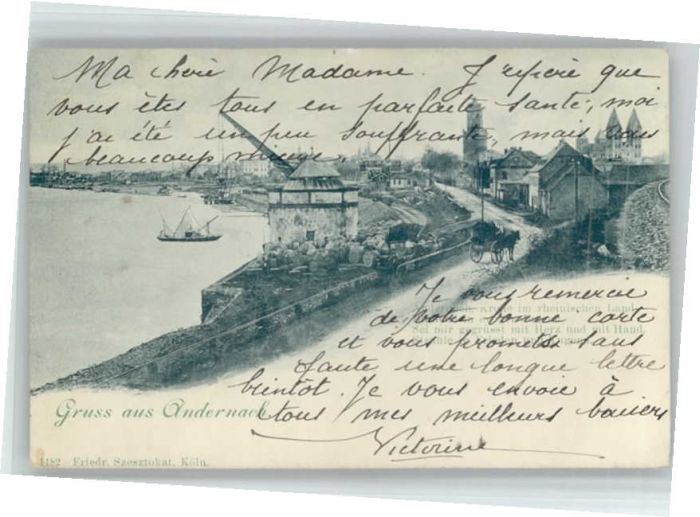 Ma chère Madame. J'espère que
vous êtes tous en parfaite santé, moi
j'ai été un peu souffrante, mais vais
beaucoup mieux.
Je vous remercie
de votre bonne carte
et vous promets sans
faute une longue lettre
bientôt. Je vous envoie à
tous mes meilleurs baisers
Victorine
im rheinischen Land
Sei mir gegrüsst mit Herz und mit Hand,
Gruss aus Andernach
1482 Friedr. Szesztokat, Köln.